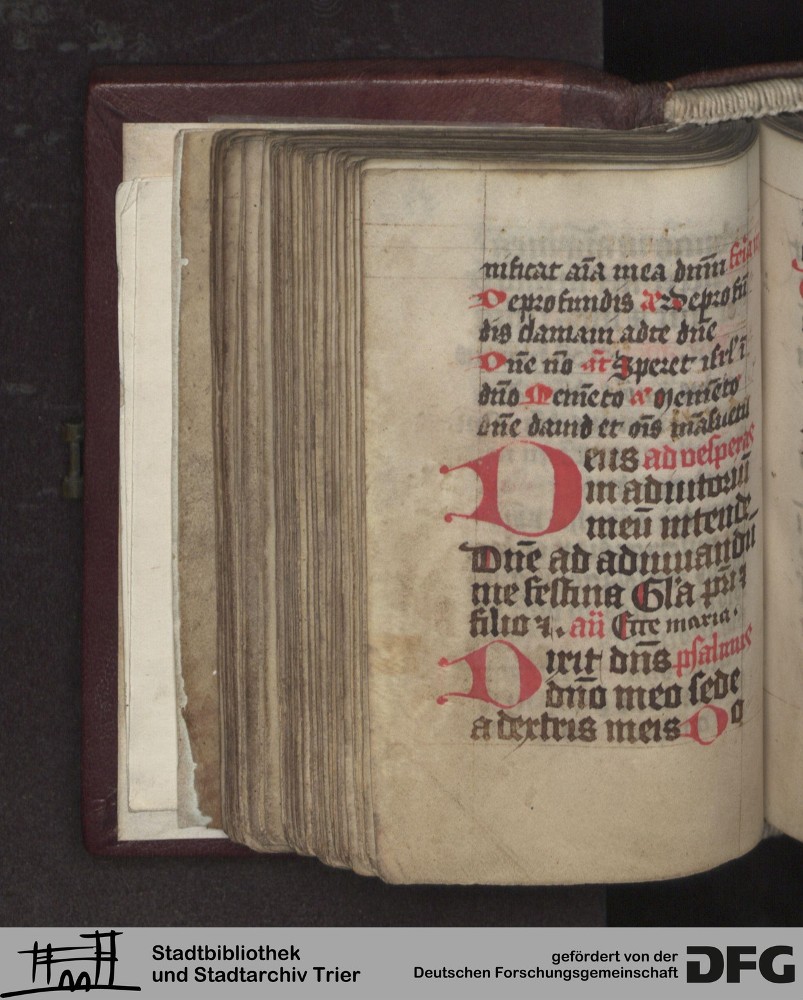 nificat aīa mea dn̄m feria
De profundis a De profū
dis clamaui ad te dn̄e
Dn̄e nō an̄ Speret isrl' ī
dn̄o Memēto a Memēto
dn̄e dauid et oīs māsuetu
Deus ad vesperas
in adiutoriū
meū intende
Dn̄e ad adiuuandū
me festina Gl'a pr̄i ⁊
filio ⁊. an̄ Ecce maria.
Dixit dn̄s psalmus
dn̄o meo sede
a dextris meis Do
Stadtbibliothek
und Stadtarchiv Trier
gefördert von der
Deutschen Forschungsgemeinschaft
DFG